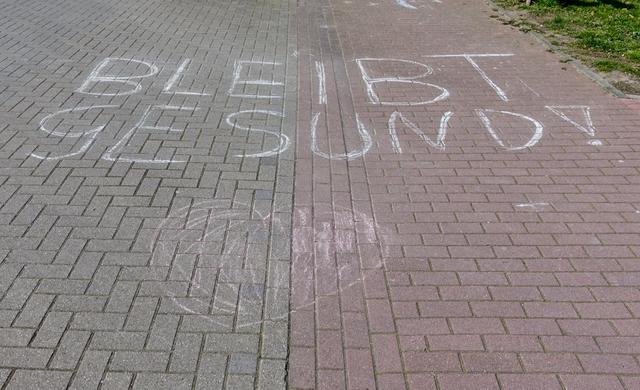 BLEIBT
GESUND!